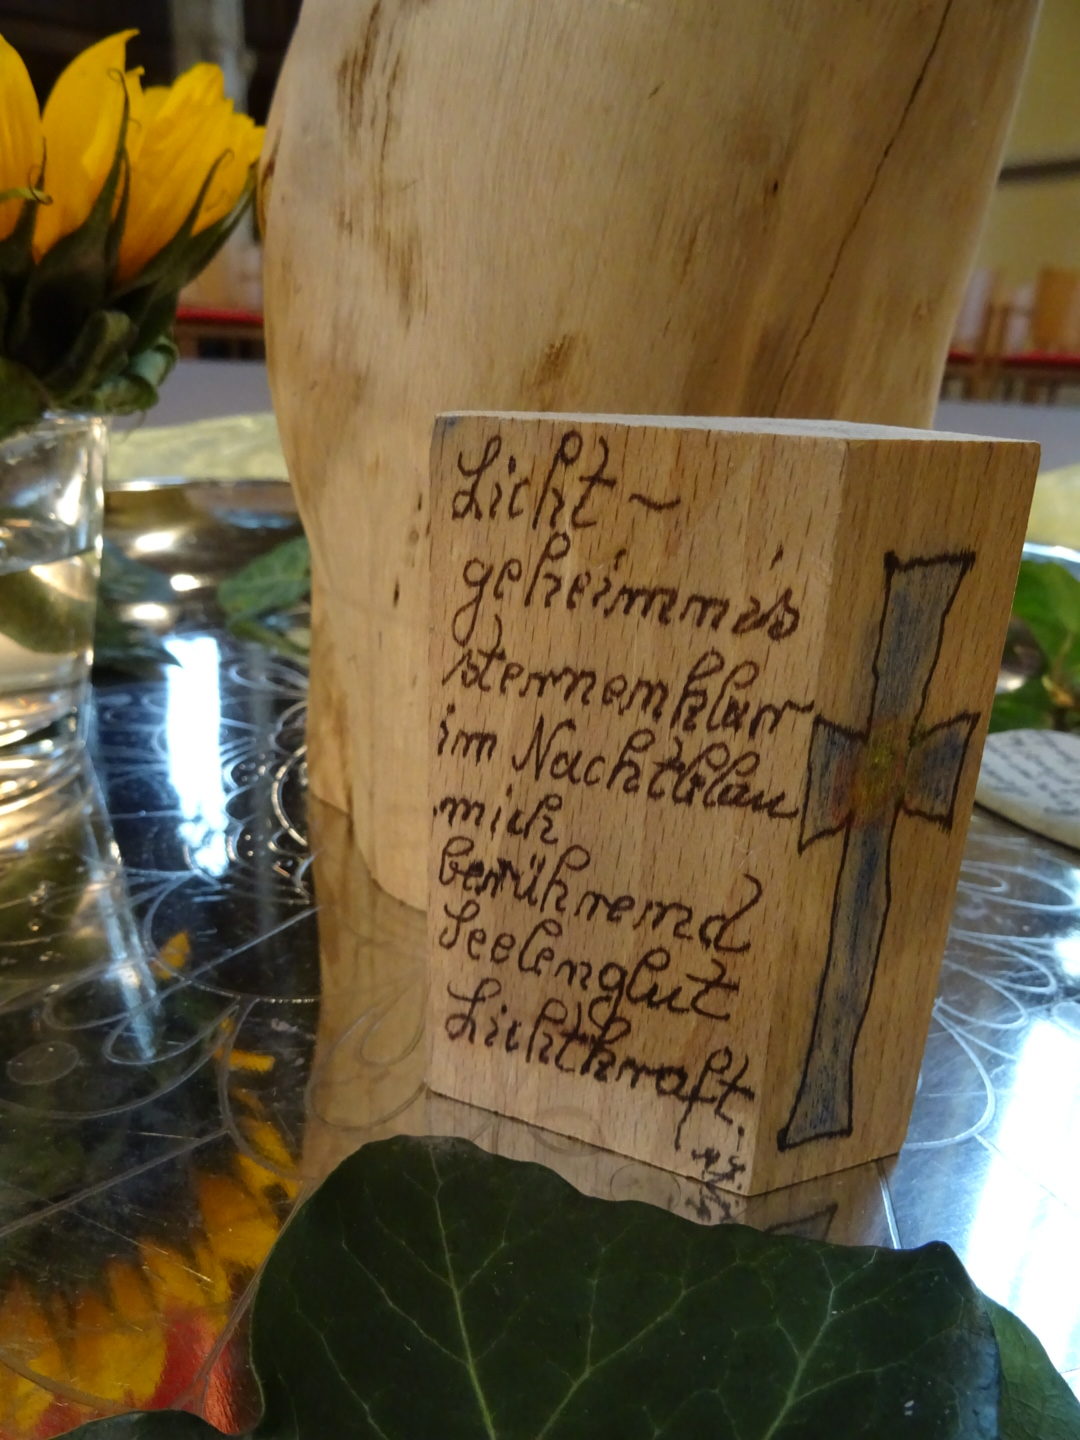 Licht ~
geheimnis
sternenklar
im Nachtblau
mich
berührend
Seelenglut
Lichtkraft